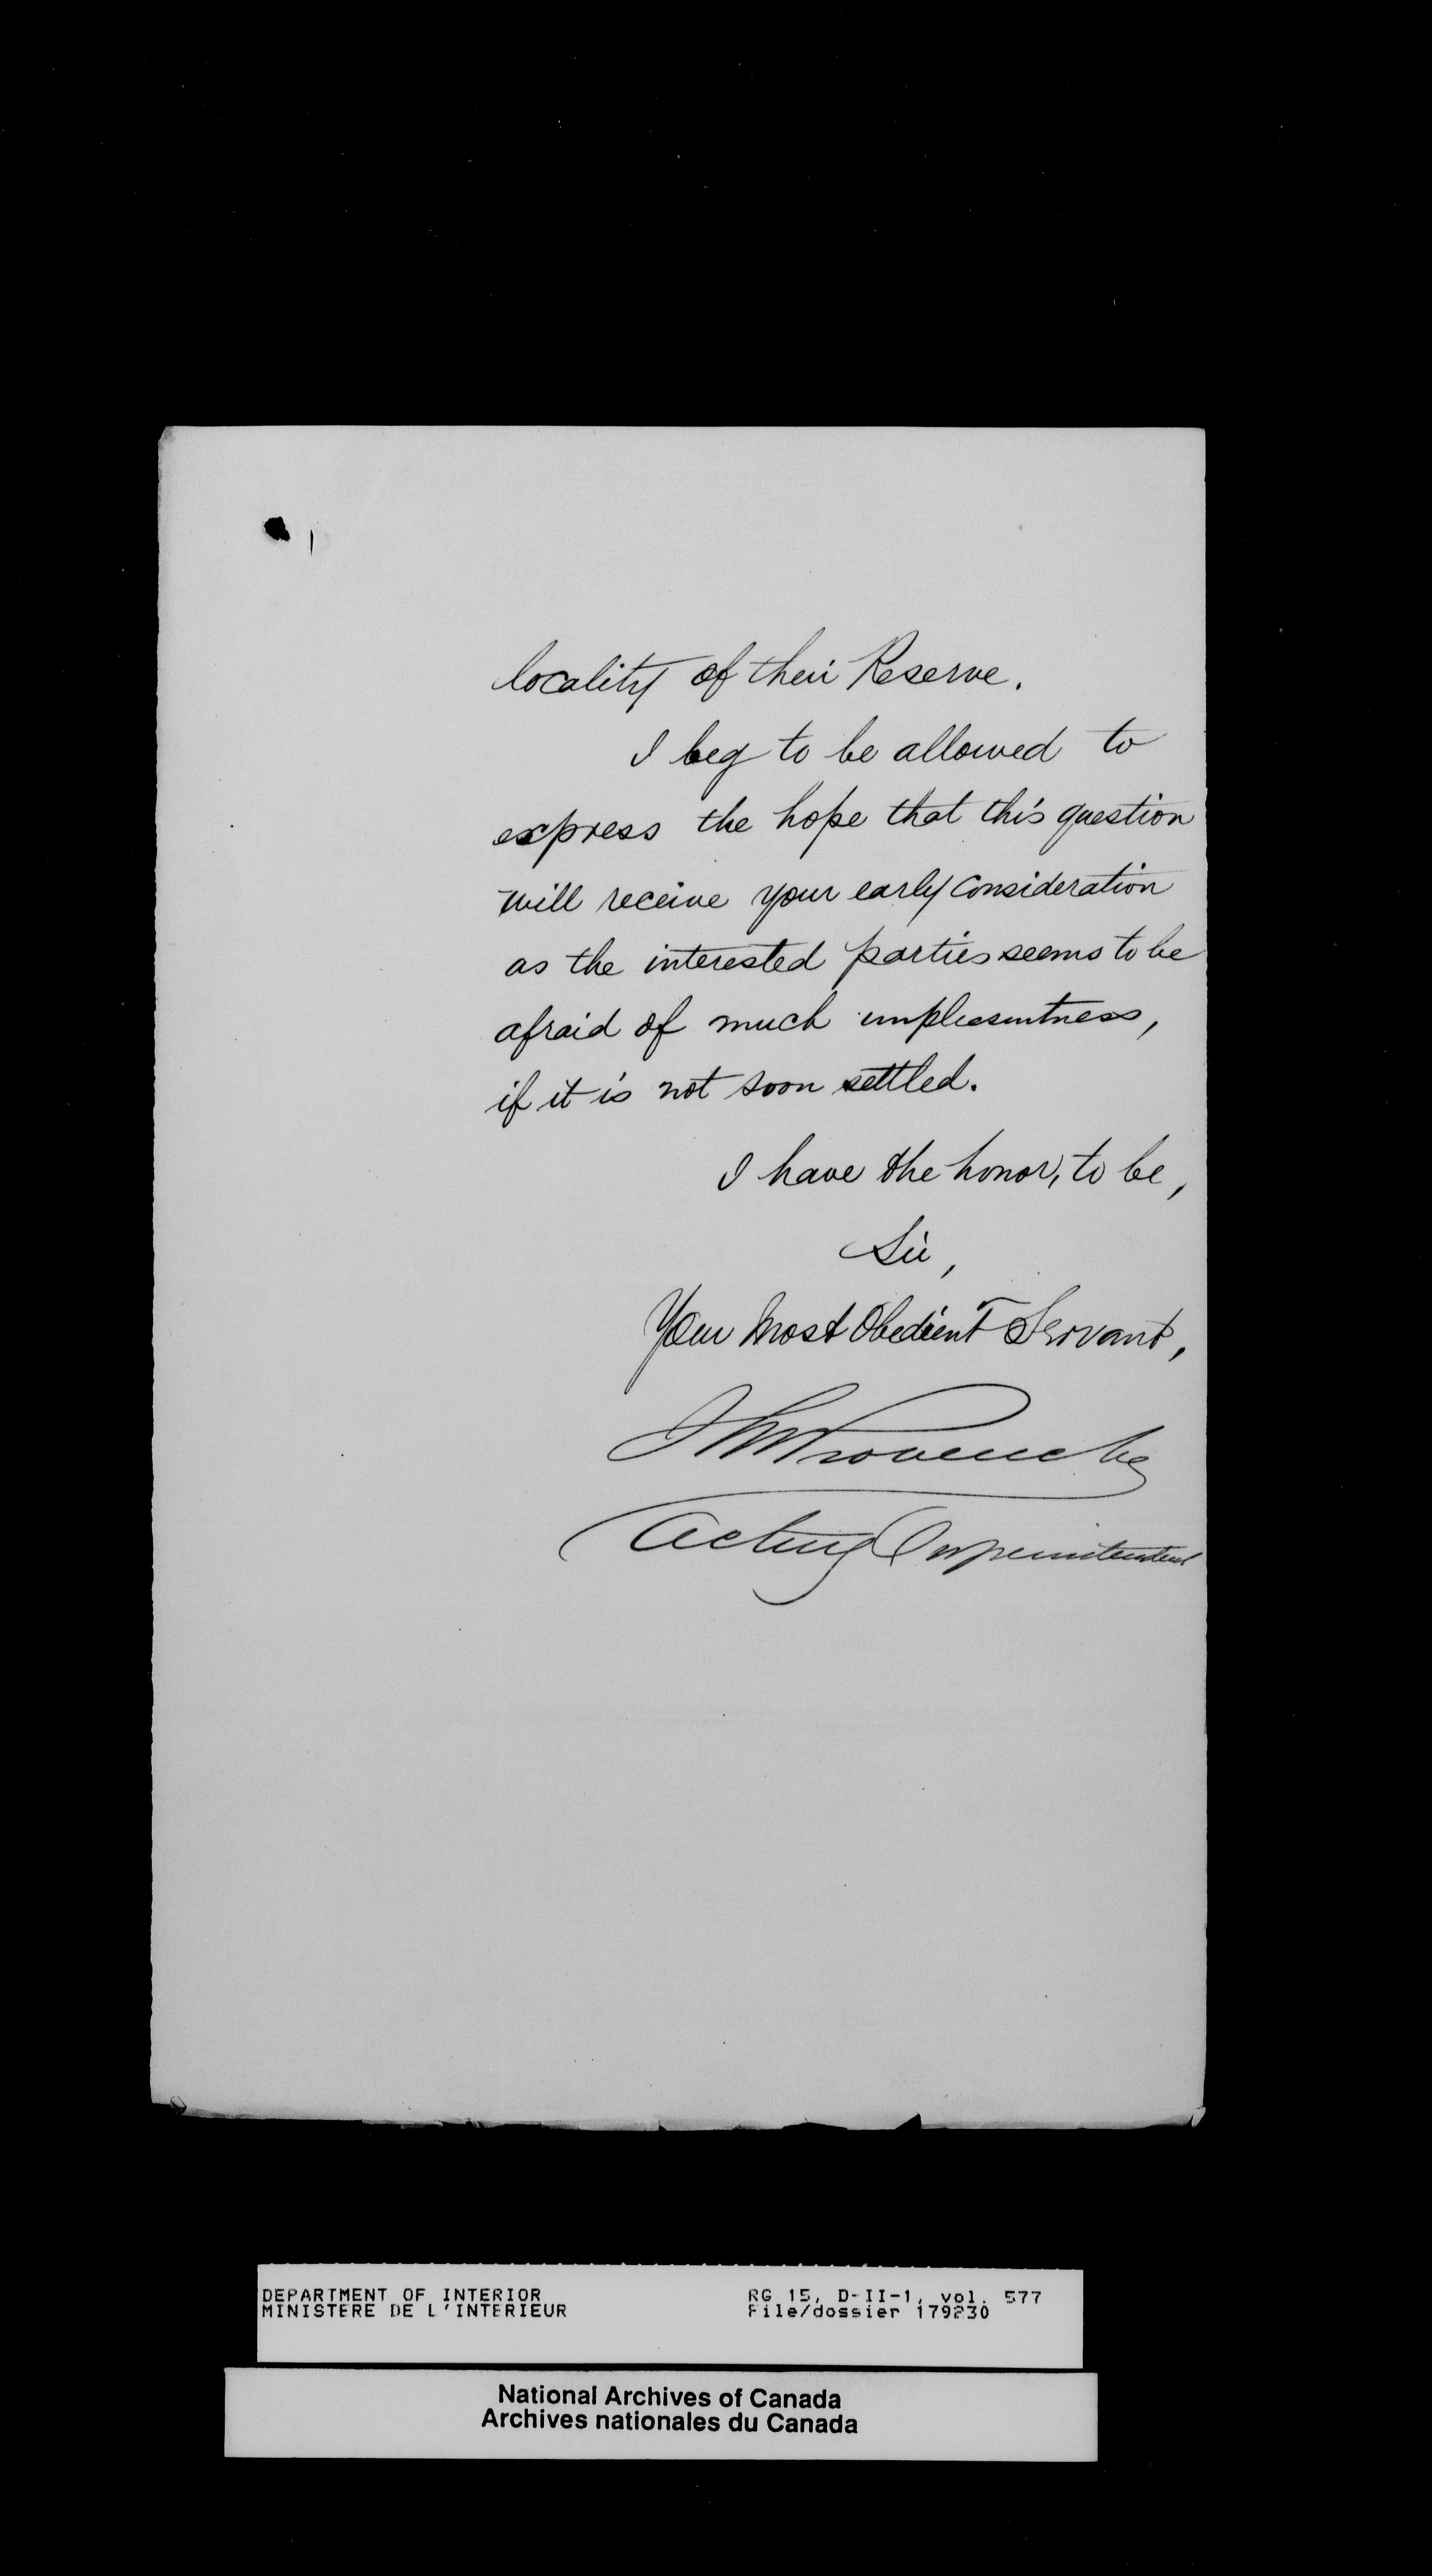 locality of their Reserve.
I beg to be allowed to
express the hope that this question
will receive your early consideration
as the interested parties seems to be
afraid of much unpleasentness,
if it is not soon settled.
I have the honor, to be,
Sir,
Your Most Obedient Servant,
Provencher
Acting Superintendent
DEPARTMENT OF INTERIOR
MINISTERE DE L'INTERIEUR
RG 15, D-II-1, vol. 577
File/dossier 179230
National Archives of Canada
Archives nationales du Canada